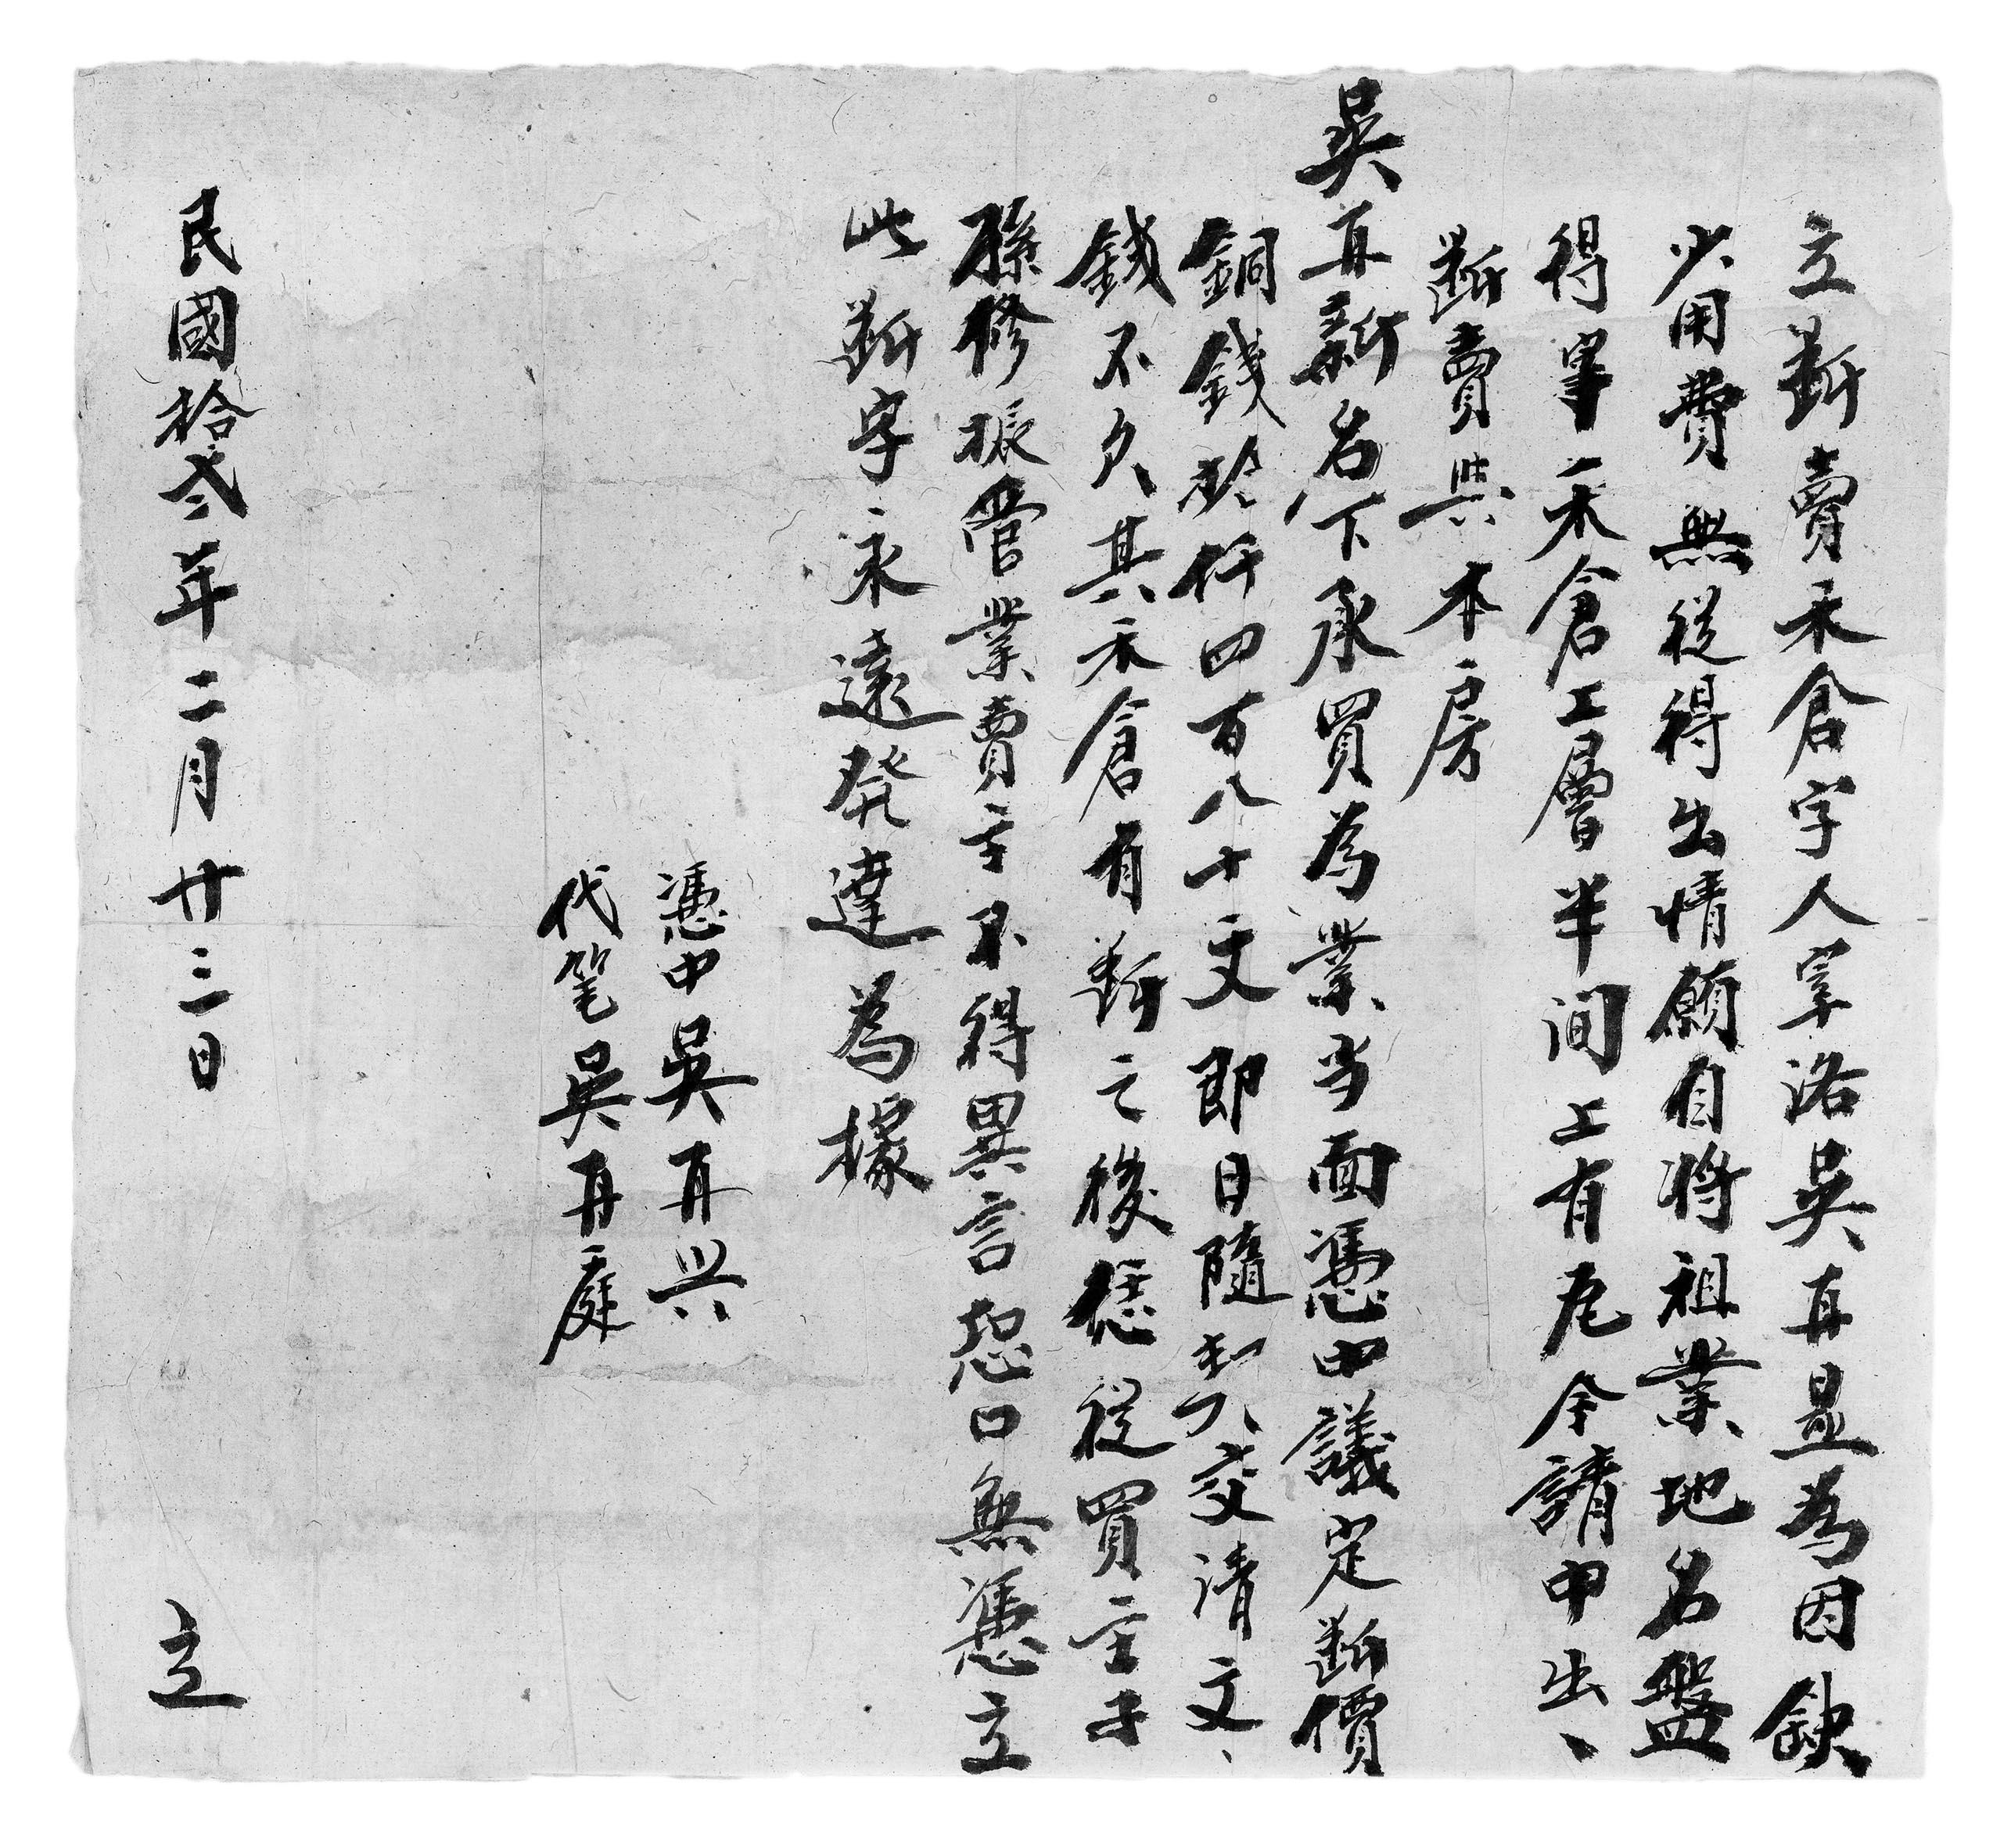 立断賣禾倉字人宰洛吳再显為因缺
少用費無從得出情願自将祖業地名盤
得禾倉上層半间上有瓦今請中出、
断賣與本房
吳再新名下承買為業当面憑中議定断價
銅錢仟四百八十文即日隨契交清文、
錢不欠其禾倉有断之後恁從買主子
孫修振管業賣主不得異言恐口無憑立
此断字永遠發達為據
憑中吳再兴
代笔吳再庭
民國拾弍年二月廿三日 立